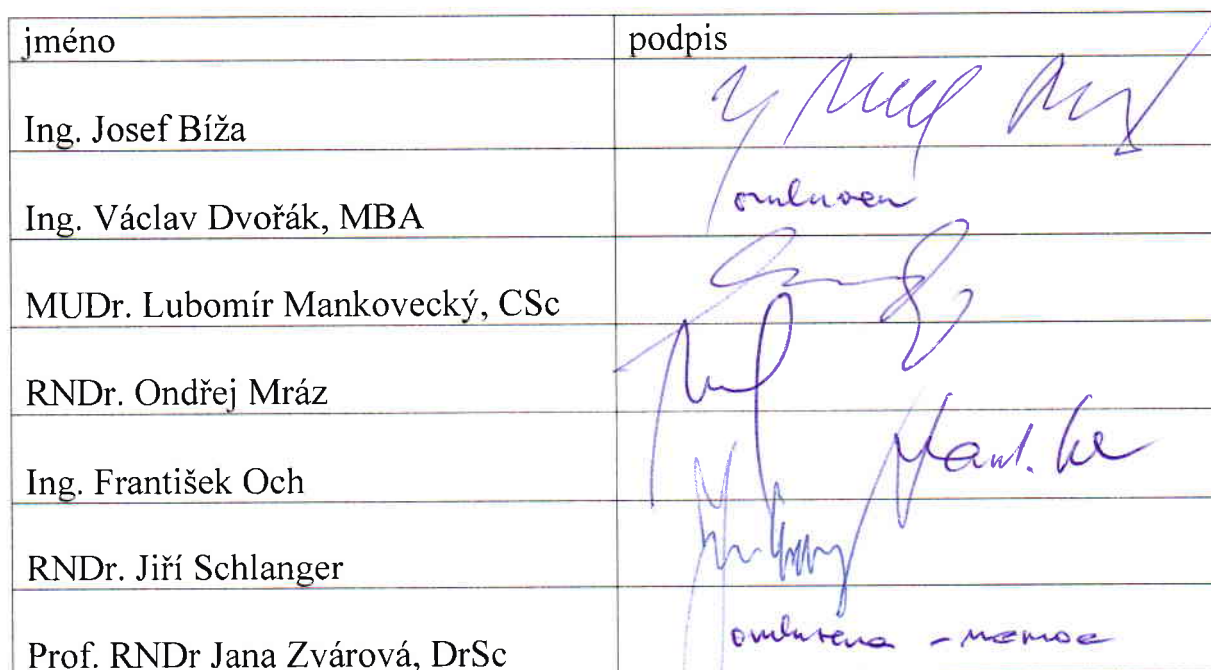 jméno podpis
Ing. Josef Bíža
Ing. Václav Dvořák, MBA omluven
MUDr. Lubomír Mankovecký, CSc
RNDr. Ondřej Mráz
Ing. František Och
RNDr. Jiří Schlanger
Prof. RNDr Jana Zvárová, DrSc omluvena - nemoc